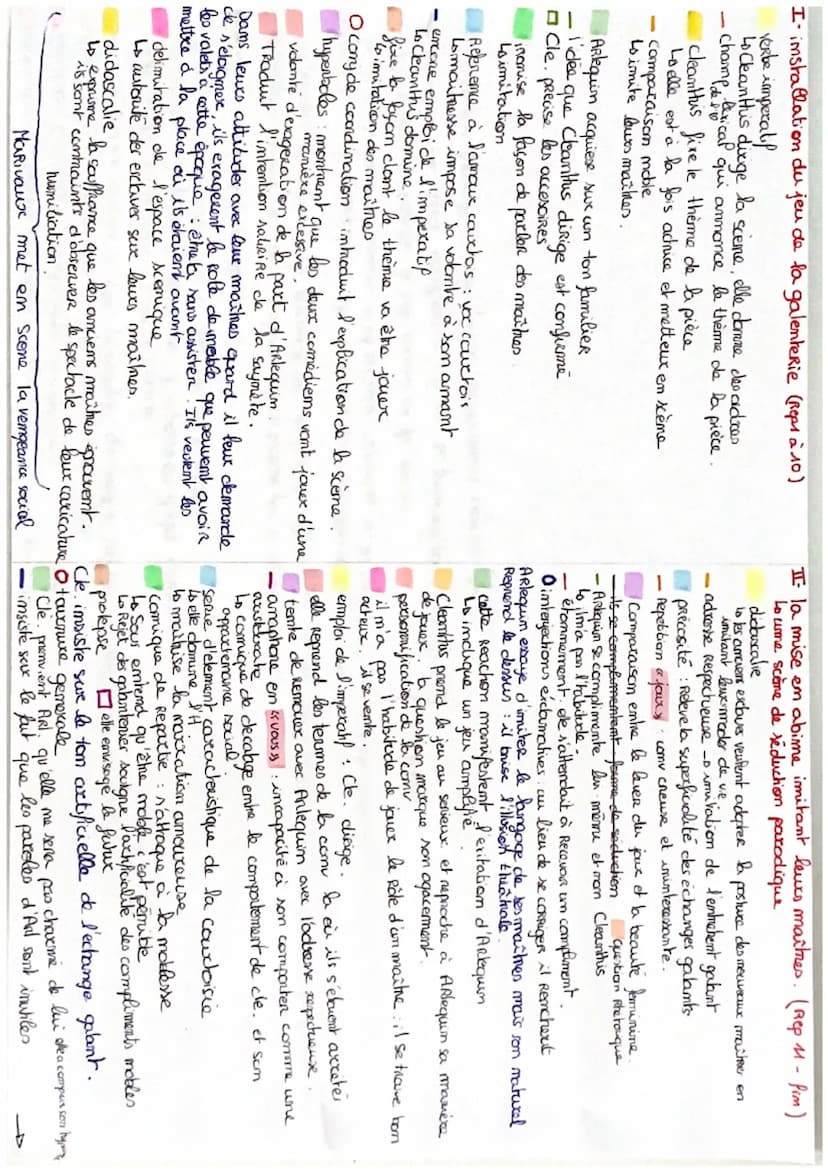 I - installation du jeu de la galenterie (Rep 1 à 10)
verbe imperatif
↳ Cleanthis dirige la scène, elle donne des ordres
- Champ lexical qui annonce le thème de la pièce.
Cleanthis fixe le thème de la pièce
↳ elle est à la fois actrice et metteur en scène
- comparaison noble
↳ imite leurs maîtres.
Arlequin acquiese sur un ton familier
- l'idée que Cleanthis dirige est confirmé
Cle. précise les accesoires
ironise la façon de parler des maîtres.
↳ imitation
Référence à l'amour courtois : voc courtois
↳ maîtresse impose sa volonté à son amant
- encore emploi de l'imperatif
↳ Cleanthis domine.
fixe la façon dont le thème va être jouer
↳ imitation des maîtres
O conj de coordination : introduit l'explication de la scène.
hyperboles : montrent que les deux comédiens vont jouer d'une
manière excessive.
volonté d'exageration de la part d'Arlequin.
Traduit l'intention satirique de la saynète.
Dans leurs attitudes avec leur maîtres quand il leur demande
de s'éloigner, ils exagerent le role de meuble que peuvent avoir
les valets à cette époque : être là sans assister. Ils veulent les
mettre à la place où ils étaient avant.
délimitation de l'espace scenique
↳ autorité des esclaves sur leurs maîtres.
didascalie
↳ exprime la souffrance que les anciens maîtres éprouvent.
ils sont contraints d'observer le spectacle de leur caricature
humiliation.
Marivaux met en scène la vengeance social
II - la mise en abime imitant leurs maîtres. (Rep 11 - fin)
↳ une scène de séduction parodique
didascalie
↳ les anciens esclaves veulent adopter la posture des nouveaux maîtres en
imitant leur mode de vie.
- adresse Respectueuse → imitation de l'entretient galant
préciosité : Relève la superficialité des echanges galants
- Repetition « jours » : conv creuse et ininteressante.
Comparaison entre la leueur du jour et la beauté feminine.
ils se complimentent forme de séduction question Rhétorique
- Arlequin se complimente lui-même et non Cleanthis
↳ il n'a pas l'habitude.
- étonnement, elle s'attendait à Recevoir un compliment.
O interjections exclamatives : au lieu de se corriger il Renchérit
Arlequin essaye d'imiter le langage de ses maîtres mais son naturel
Reprend le dessus : il brise l'illusion théâtrale.
cette Reaction manifestent l'exitation d'Arlequin
↳ indique un jeu amplifié
Cleanthis prend le jeu au serieux et reproche à Arlequin sa manière
de jouer, la question marque son agacement.
personnification de la conv
il n'a pas l'habitude de jouer le rôle d'un maître : il se trouve bon
acteur, il se vante.
emploi de l'imperatif : Cle. dirige.
elle reprend les termes de la conv là où ils s'étaient arretés
tente de renouer avec Arlequin avec l'adresse respectueuse.
- anaphore em « vous » : incapacité à son comporter comme une
aristocrate
↳ comique de decalage entre le comportement de cle. et son
appartenance social
serie d'élement caracteristique de la courtoisie
↳ elle domine l'H.
↳ maîtrise la narration amoureuse
Comique de Repartie : s'attaque à la noblesse
↳ Sous entend qu'être noble c'est pénible
↳ Rejet des galanteries souligne l'artificialité des compliments nobles
prolepse elle envisage le futur
Cle. insiste sur le ton artificielle de l'échange galant.
O tournure generale
Cle. prévient Arl qu'elle ne sera pas charmé de lui
- insiste sur le fait que les paroles d'Arl sont inutiles →